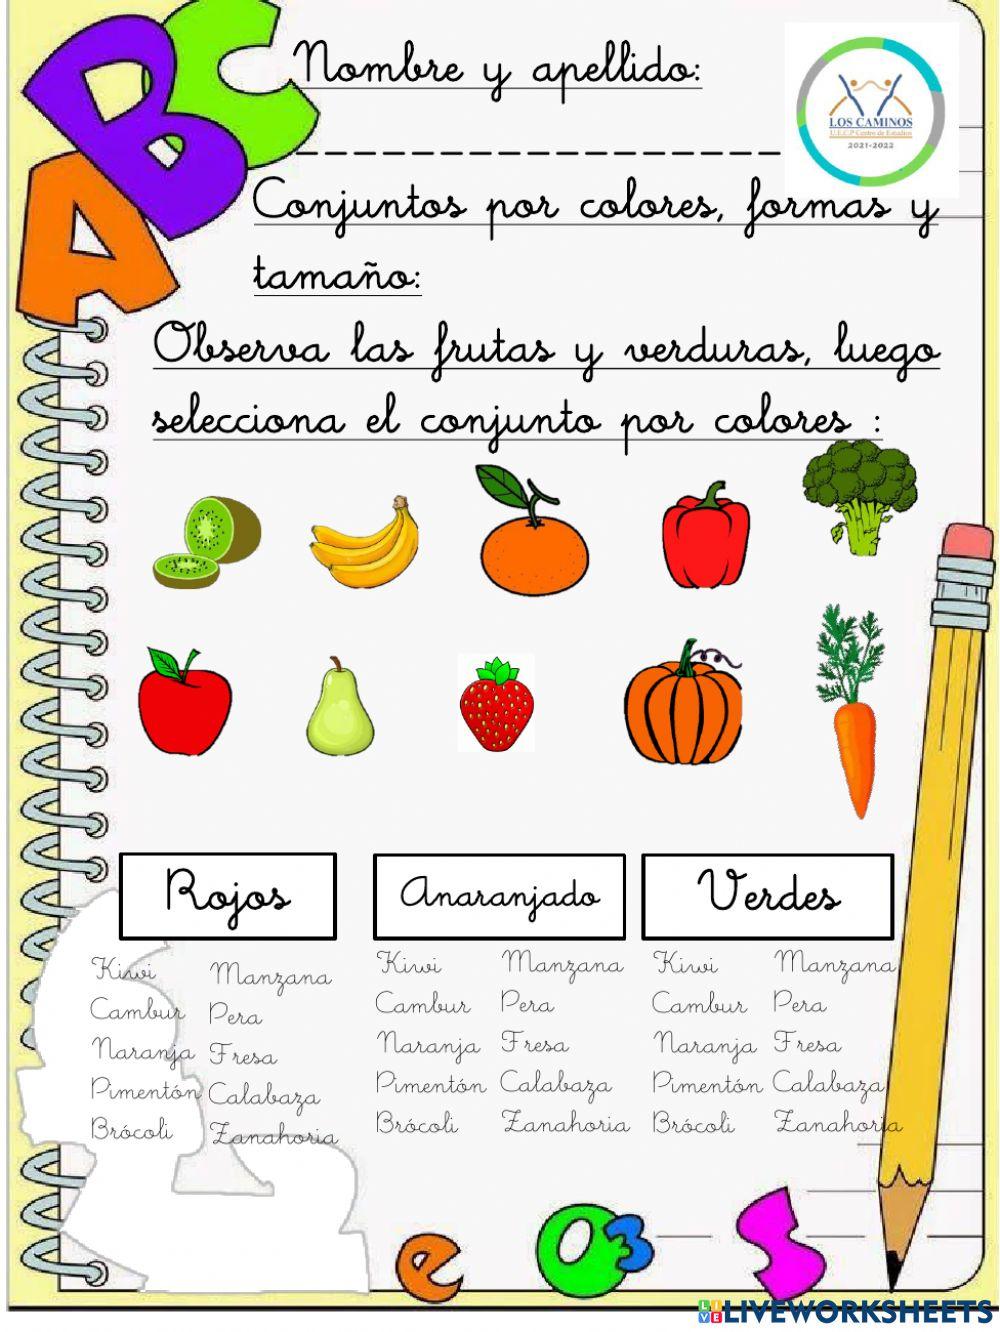 ABC
Nombre y apellido:
LOS CAMINOS
U.E.C.P Centro de Estudios
2021-2022
Conjuntos por colores, formas y
tamaño:
Observa las frutas y verduras, luego
selecciona el conjunto por colores :
Rojos Anaranjado Verdes
Kiwi Manzana Kiwi Manzana Kiwi Manzana
Cambur Pera Cambur Pera Cambur Pera
Naranja Fresa Naranja Fresa Naranja Fresa
Pimentón Calabaza Pimentón Calabaza Pimentón Calabaza
Brócoli Zanahoria Brócoli Zanahoria Brócoli Zanahoria
e O 3 S
LIVE LIVEWORKSHEETS